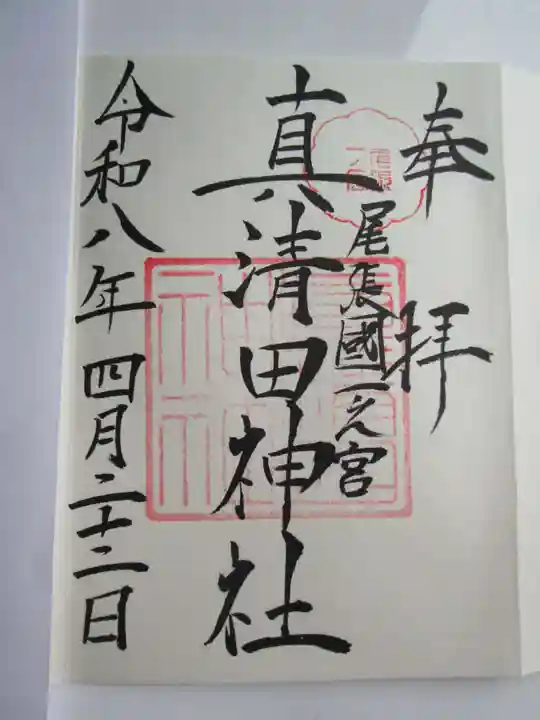 奉拝
尾張國一之宮
真清田神社
令和八年四月二十二日
尾張
一ノ宮